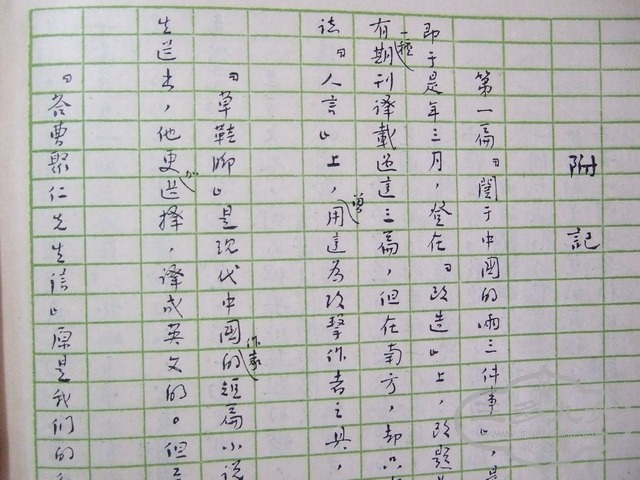 附記
第一篇「関于中國的兩三件事」，是
即于是年三月，登在「改造」上，改題
有一種期刊譯載过這三篇，但在南方，却只
誌「人言」上，曾用這為攻擊作者之具，
「草鞋脚」是现代中國作家的短篇小说
生送去，他更加选擇，譯成英文的。但
「答曹聚仁先生信」原是我们的